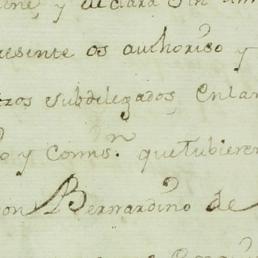 y declara sin
presente os authoriso y
subdelegados, en las
o y Comis.n que tubieren
Don Bernardino de